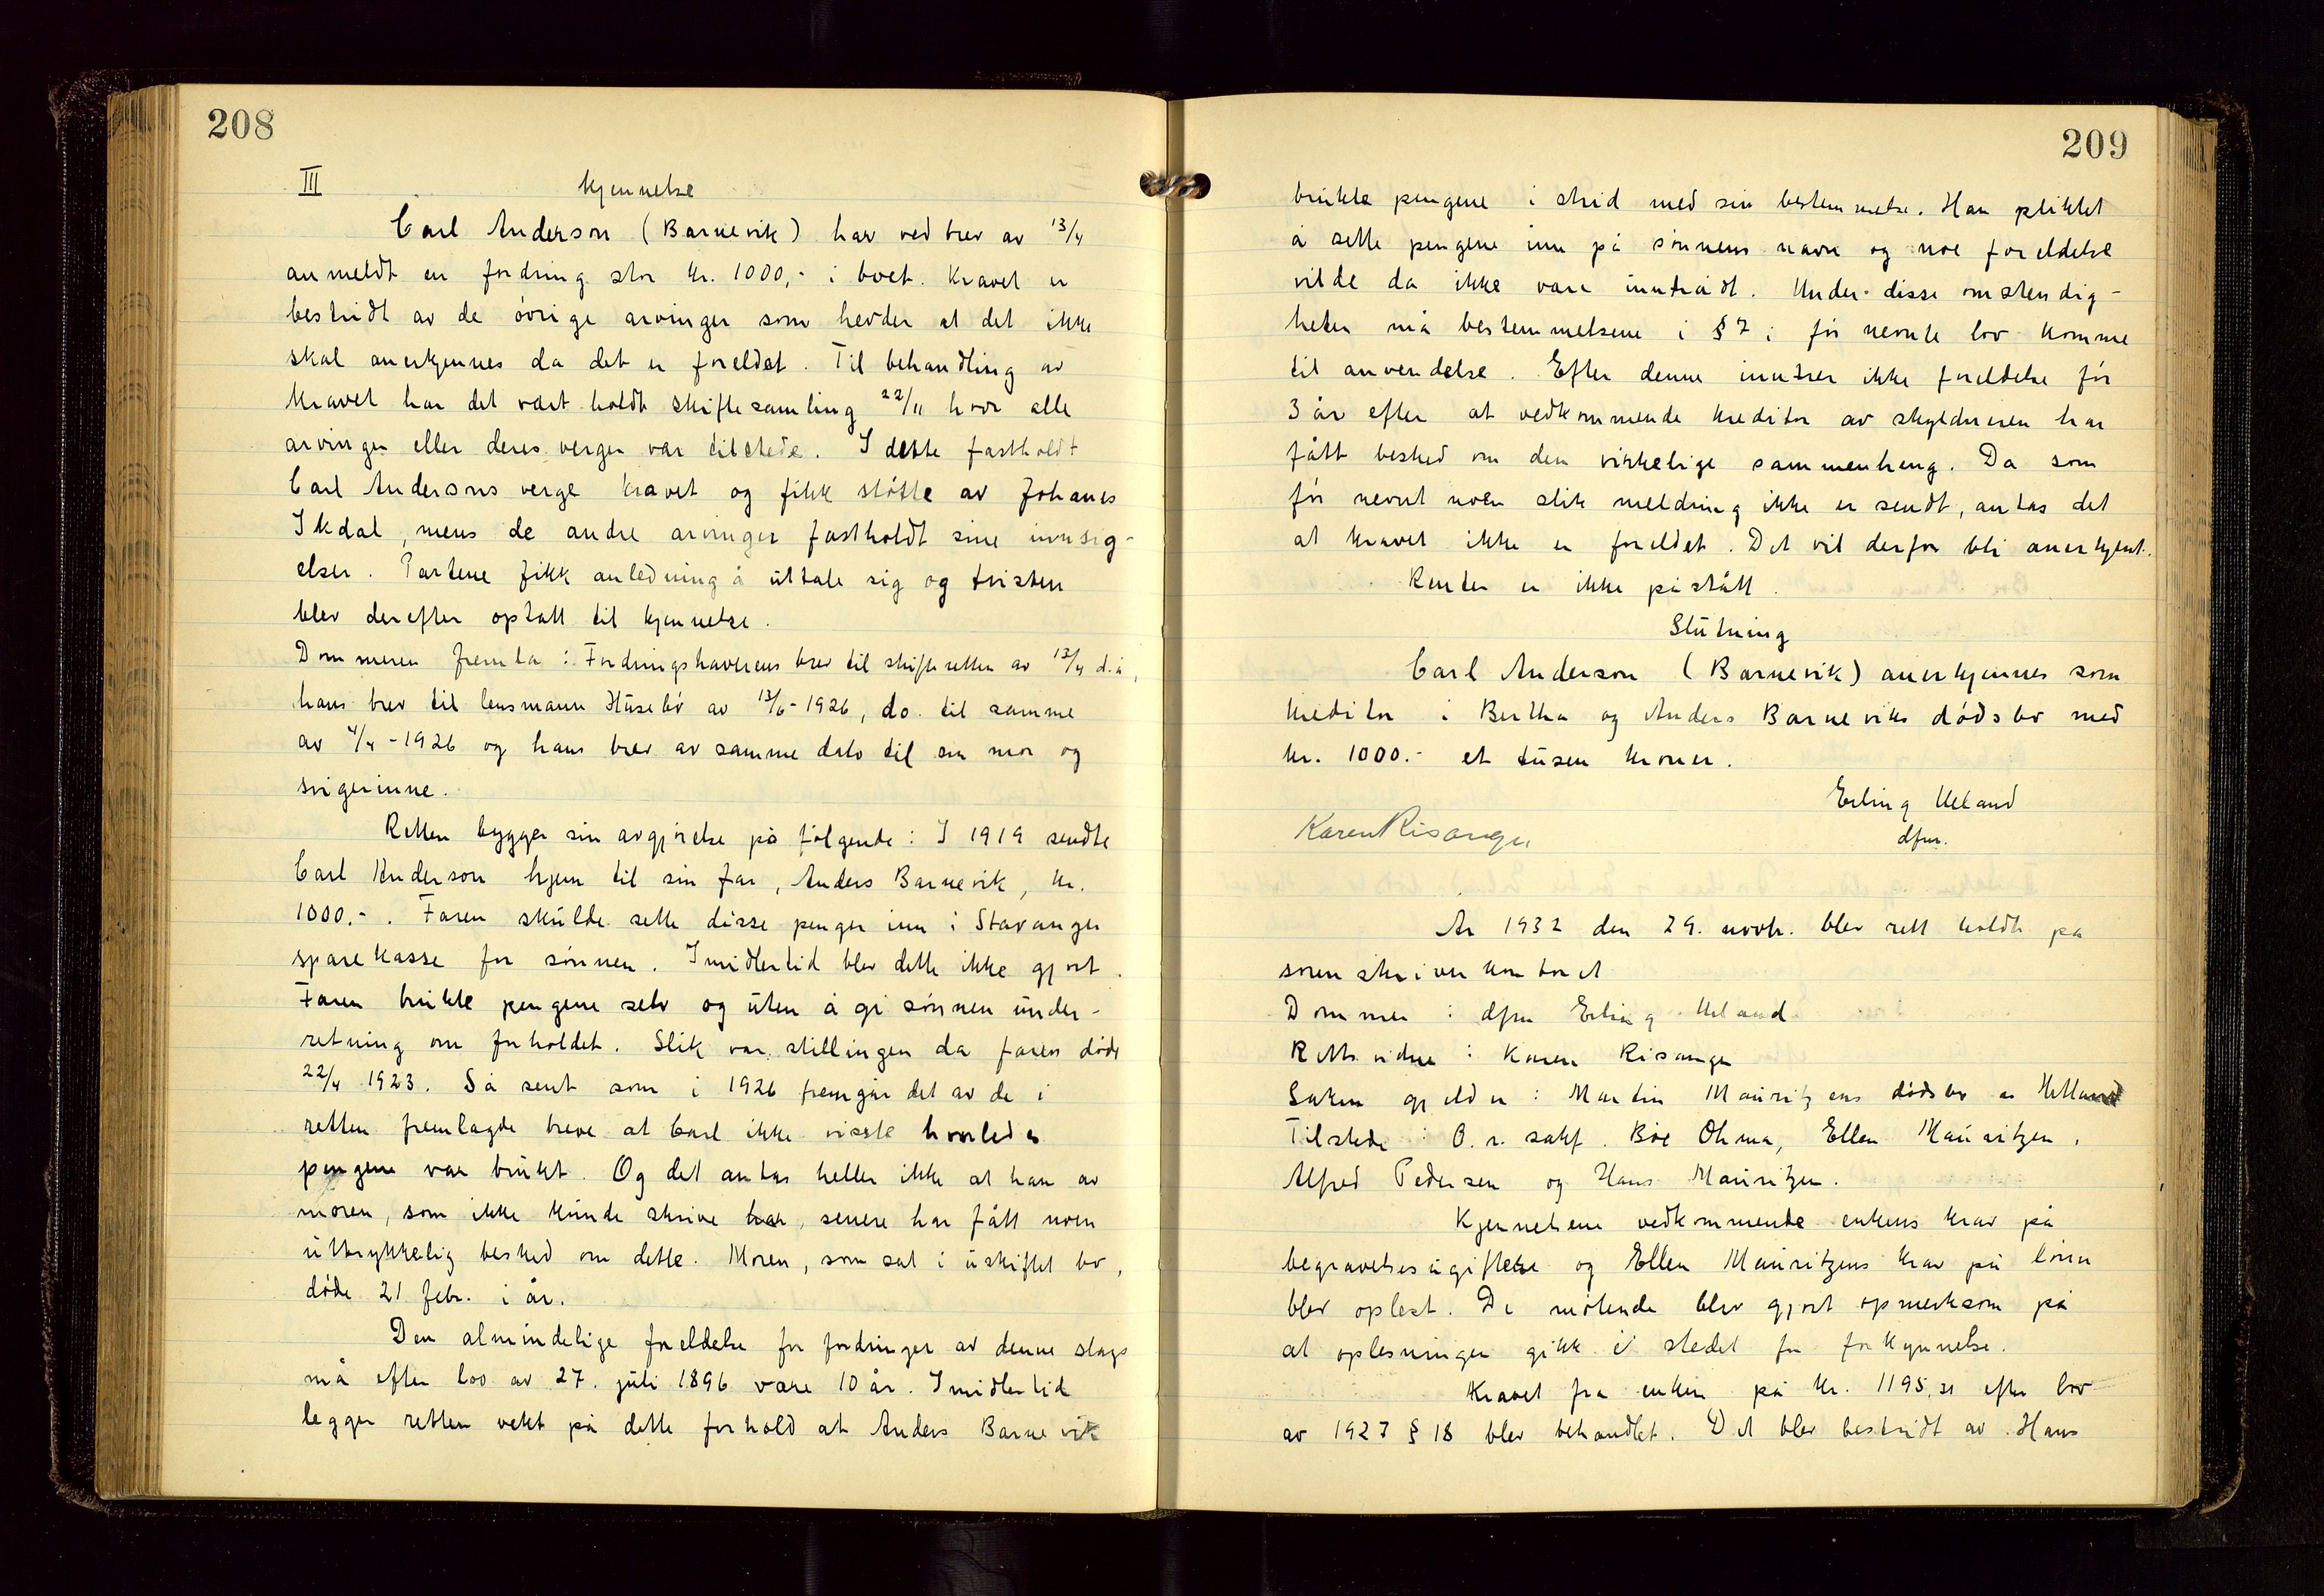 208
III kjennelse
Carl Anderson (Barnevik) har ved brev av 13/4
anmeldt en fordring stor kr. 1000,- i boet. Kravet er
bestridt av de øvrige arvinger som hevder at det ikke
skal anerkjennes da det er foreldet. Til behandling av
kravet har det vært holdt skiftesamling 22/11 hvor alle
arvinger eller deres verger var tilstede. I dette fastholdt
Carl Andersons verge kravet og fikk støtte av Johanes
Ikdal, mens de andre arvinger fastholdt sine innsig-
elser. Partene fikk anledning å uttale sig og tvisten
blev derefter optatt til kjennelse.
Dommeren fremla: Fordringshaverens brev til skifteretten av 13/4 d.å,
hans brev til lensmann Husebø av 13/6-1926, do. til samme
av 4/4-1926 og hans brev av samme dato til sin mor og
svigerinne.
Retten bygger sin avgjørelse på følgende: I 1919 sendte
Carl Anderson hjem til sin far, Anders Barnevik, kr.
1000.-. Faren skulde sette disse penger inn i Stavanger
sparekasse for sønnen. Imidlertid blev dette ikke gjort.
Faren brukte pengene selv og uten å gi sønnen under-
retning om forholdet. Slik var stillingen da faren døde
22/4 1923. Så sent som i 1926 fremgår det av de i
retten fremlagde breve at Carl ikke visste hvorledes
pengene var brukt. Og det antas heller ikke at han av
moren, som ikke kunde skrive har, senere har fått noen
uttrykkelig besked om dette. Moren, som sat i uskiftet bo,
døde 21 febr. i år.
Den almindelige foreldelse for fordringer av denne slags
må efter lov av 27. juli 1896 være 10 år. Imidlertid
legger retten vekt på dette forhold at Anders Barnevik
209
brukte pengene i strid med sin bestemmelse. Han pliktet
å sette pengene inn på sønnens navn og noe foreldelse
vilde da ikke være inntrådt. Under disse omstendig-
heter må bestemmelsene i § 7 i før nevnte lov komme
til anvendelse. Efter denne inntrer ikke foreldelse før
3 år efter at vedkommende kreditor av skyldneren har
fått besked om den virkelige sammenheng. Da som
før nevnt noen slik meldning ikke er sendt, antas det
at kravet ikke er foreldet. Det vil derfor bli anerkjent.
Renter er ikke påstått.
Slutning
Carl Anderson (Barnevik) anerkjennes som
kreditor i Bertha og Anders Barneviks dødsbo med
kr. 1000.- et tusen kroner.
Erling Ueland
dfm.
Karen Risanger
År 1932 den 29. novbr. blev rett holdt på
sorenskriverkontoret
Dommer: dfm Erling Ueland
Rettsvidne: Karen Risanger
Saken gjelder: Martin Mauritzens dødsbo av Helland
Tilstede: O.r. sakf. Bøe Ohma, Ellen Mauritzen,
Alfred Pedersen og Hans Mauritzen.
Kjennelsene vedkommende enkens krav på
begravelsesugiftene og Ellen Mauritzens krav på lønn
blev oplest. De møtende blev gjort opmerksom på
at oplesningen gikk i stedet for forkynnelse.
Kravet fra enken på kr. 1195,31 efter lov
av 1927 § 18 blev behandlet. Det blev bestridt av Hans